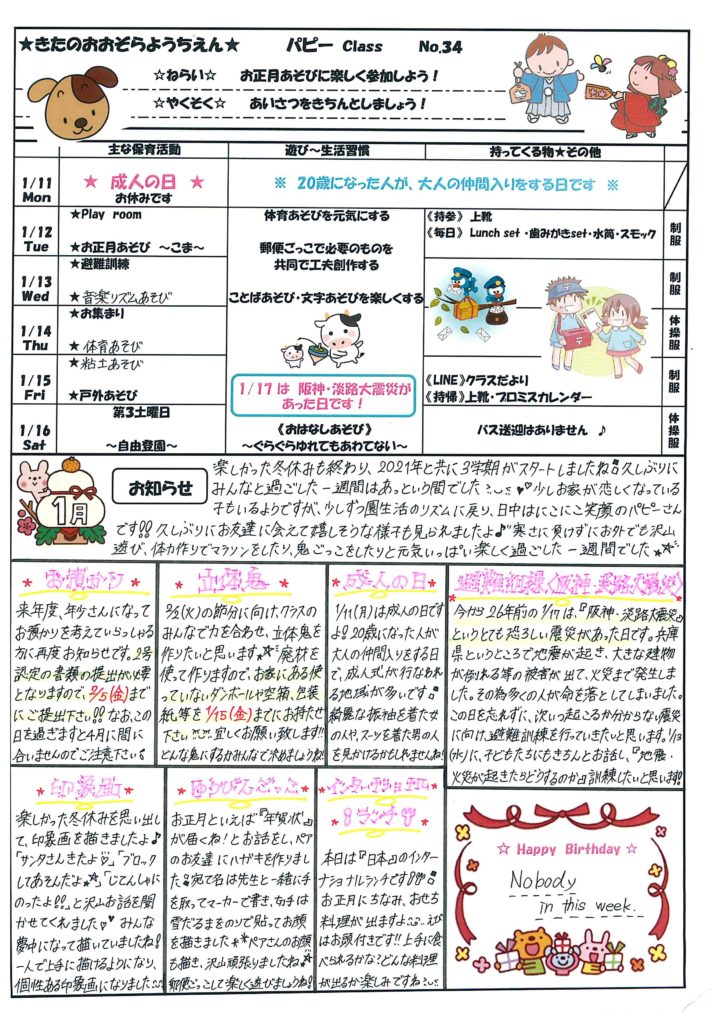 ★きたのおおぞらようちえん★ パピー Class No.34
☆ねらい☆ お正月あそびに楽しく参加しよう！
☆やくそく☆ あいさつをきちんとしましょう！
主な保育活動 遊び～生活習慣 持ってくる物★その他
1/11 Mon
★ 成人の日 ★
お休みです
※ 20歳になった人が、大人の仲間入りをする日です ※
1/12 Tue
★Play room
★お正月あそび ～こま～
体育あそびを元気にする
郵便ごっこで必要のものを
《持参》上靴
《毎日》Lunch set・歯みがきset・水筒・スモック
制服
1/13 Wed
★避難訓練
★音楽リズムあそび
共同で工夫創作する
ことばあそび・文字あそびを楽しくする
制服
1/14 Thu
★お集まり
★体育あそび
体操服
1/15 Fri
★粘土あそび
★戸外あそび
1/17は 阪神・淡路大震災が
あった日です！
《LINE》クラスだより
《持帰》上靴・プロミスカレンダー
制服
1/16 Sat
第3土曜日
～自由登園～
《おはなしあそび》
～ぐらぐらゆれてもあわてない～
バス送迎はありません ♪
体操服
1月
お知らせ
楽しかった冬休みも終わり、2021年と共に3学期がスタートしましたね♪久しぶりに
みんなと過ごした一週間はあっという間でした♥♥少しお家が恋しくなっている
子もいるようですが、少しずつ園生活のリズムに戻り、日中はにこにこ笑顔のパピーさん
です!!久しぶりにお友達に会えて嬉しそうな様子も見られましたよ♪寒さに負けずにお外でも沢山
遊び、体力作りでマラソンをしたり、鬼ごっこをしたりと元気いっぱい楽しく過ごした一週間でした★☆
お預かり
来年度、年少さんになって
お預かりを考えていらっしゃる
方に再度お知らせです。2号
認定の書類の提出が必要
となりますので、2/5(金)まで
にご提出下さい!!なお、この
日を過ぎますと4月に間に
合いませんのでご注意下さい
立体鬼
2/2(火)の節分に向け、クラスの
みんなで力を合わせ、立体鬼を
作りたいと思います。★廃材を
使って作りますので、お家にある使
っていないダンボールや空箱、包装
紙、等を1/15(金)までにお持ち
下さい 宜しくお願い致します!!
どんな鬼にするかみんなで決めましょうね!!
成人の日
1/11(月)は成人の日です
よ!20歳になった人が
大人の仲間入りをする日
で、成人式が行なわれ
る地域が多いです♪
綺麗な振袖を着た女
の人や、スーツを着た男の人
を見かけるかもしれませんね!
避難訓練〈阪神・淡路大震災〉
今から26年前の1/17は、『阪神・淡路大震災』
というとても恐ろしい震災があった日です。兵庫
県というところで地震が起き、大きな建物
が倒れる等の被害が出て、火災まで発生しま
した。その為多くの人が命を落としてしまいました。
この日を忘れずに、次いつ起こるか分からない震災
に向け、避難訓練を行っていきたいと思います。1/13
(水)に、子どもたちにもきちんとお話し、『地震・
火災が起きたらどうするのか』訓練したいと思います!!
印象画
楽しかった冬休みを思い出し
て、印象画を描きましたよ♪
「サンタさんきたよ」、「ブロック
してあそんだよ☆」、「じてんしゃに
のったよ!!」と沢山お話を聞
かせてくれました♥みんな
夢中になって描いていましたね!
一人で上手に描けるようになり、
個性ある印象画になりました
ゆうびんごっこ
お正月といえば『年賀状』
が届くね!とお話をし、ペア
のお友達にハガキを作りまし
た♪宛て名は先生と一緒に手
を取ってマーカーで書き、切手は
雪だるまをのりで貼ってお顔
を描きました★★ペアさんのお顔
も描き、沢山頑張りましたね♪
郵便ごっこして楽しく遊びましょうね!
インターナショナル
ランチ
本日は『日本』のインター
ナショナルランチです
お正月にちなみ、おせち
料理が出ますよ えび
はお頭付きです!!上手に食
べられるかな?どんな料理
が出るか楽しみですね
☆ Happy Birthday ☆
Nobody
in this week.